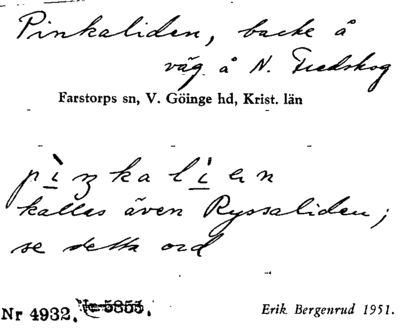 Pinkaliden, backe å
väg å N. Fredskog
Farstorps sn, V. Göinge hd, Krist. län
kallas även Ryssaliden;
se detta ord
Nr 4932. Erik Bergenrud 1951.